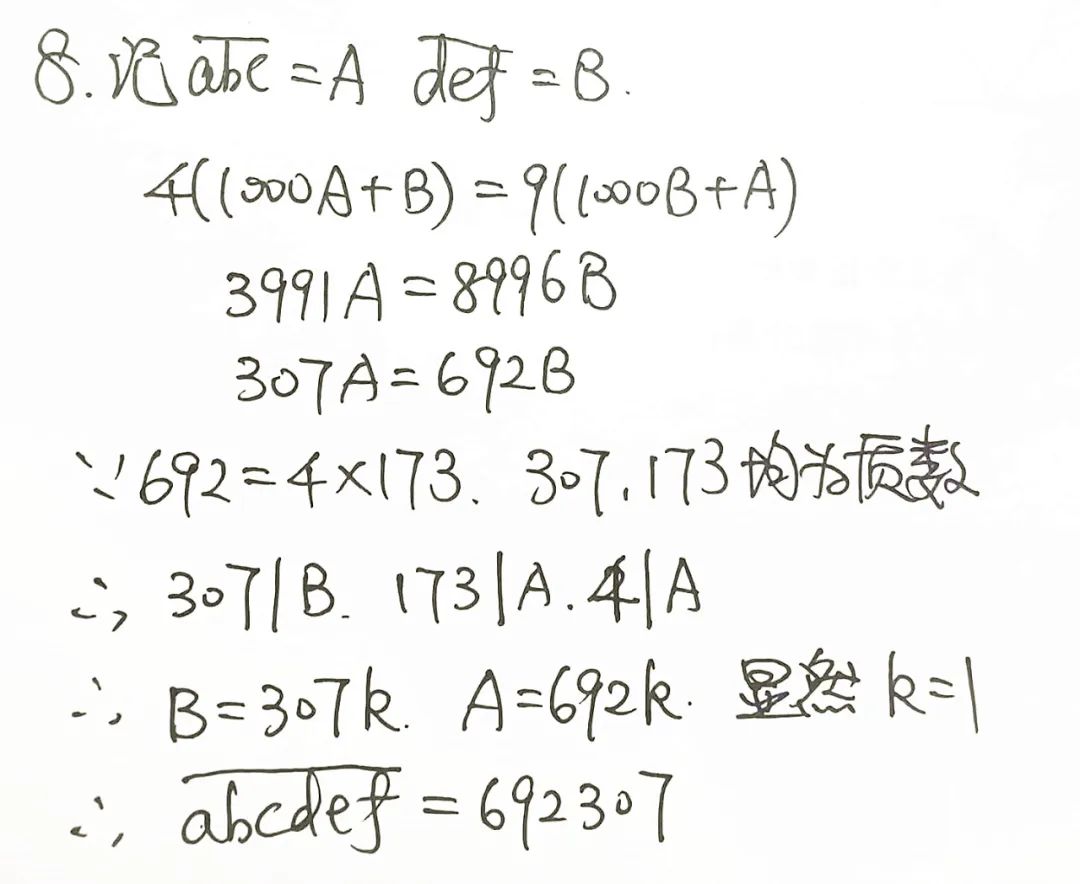 8. 记 \overline{abc} = A \overline{def} = B.
4(1000A+B) = 9(1000B+A)
3991A = 8996B
307A = 692B
∵ 692 = 4×173. 307, 173均为质数
∴ 307|B. 173|A. 4|A
∴ B=307k. A=692k. 显然 k=1
∴ \overline{abcdef} = 692307